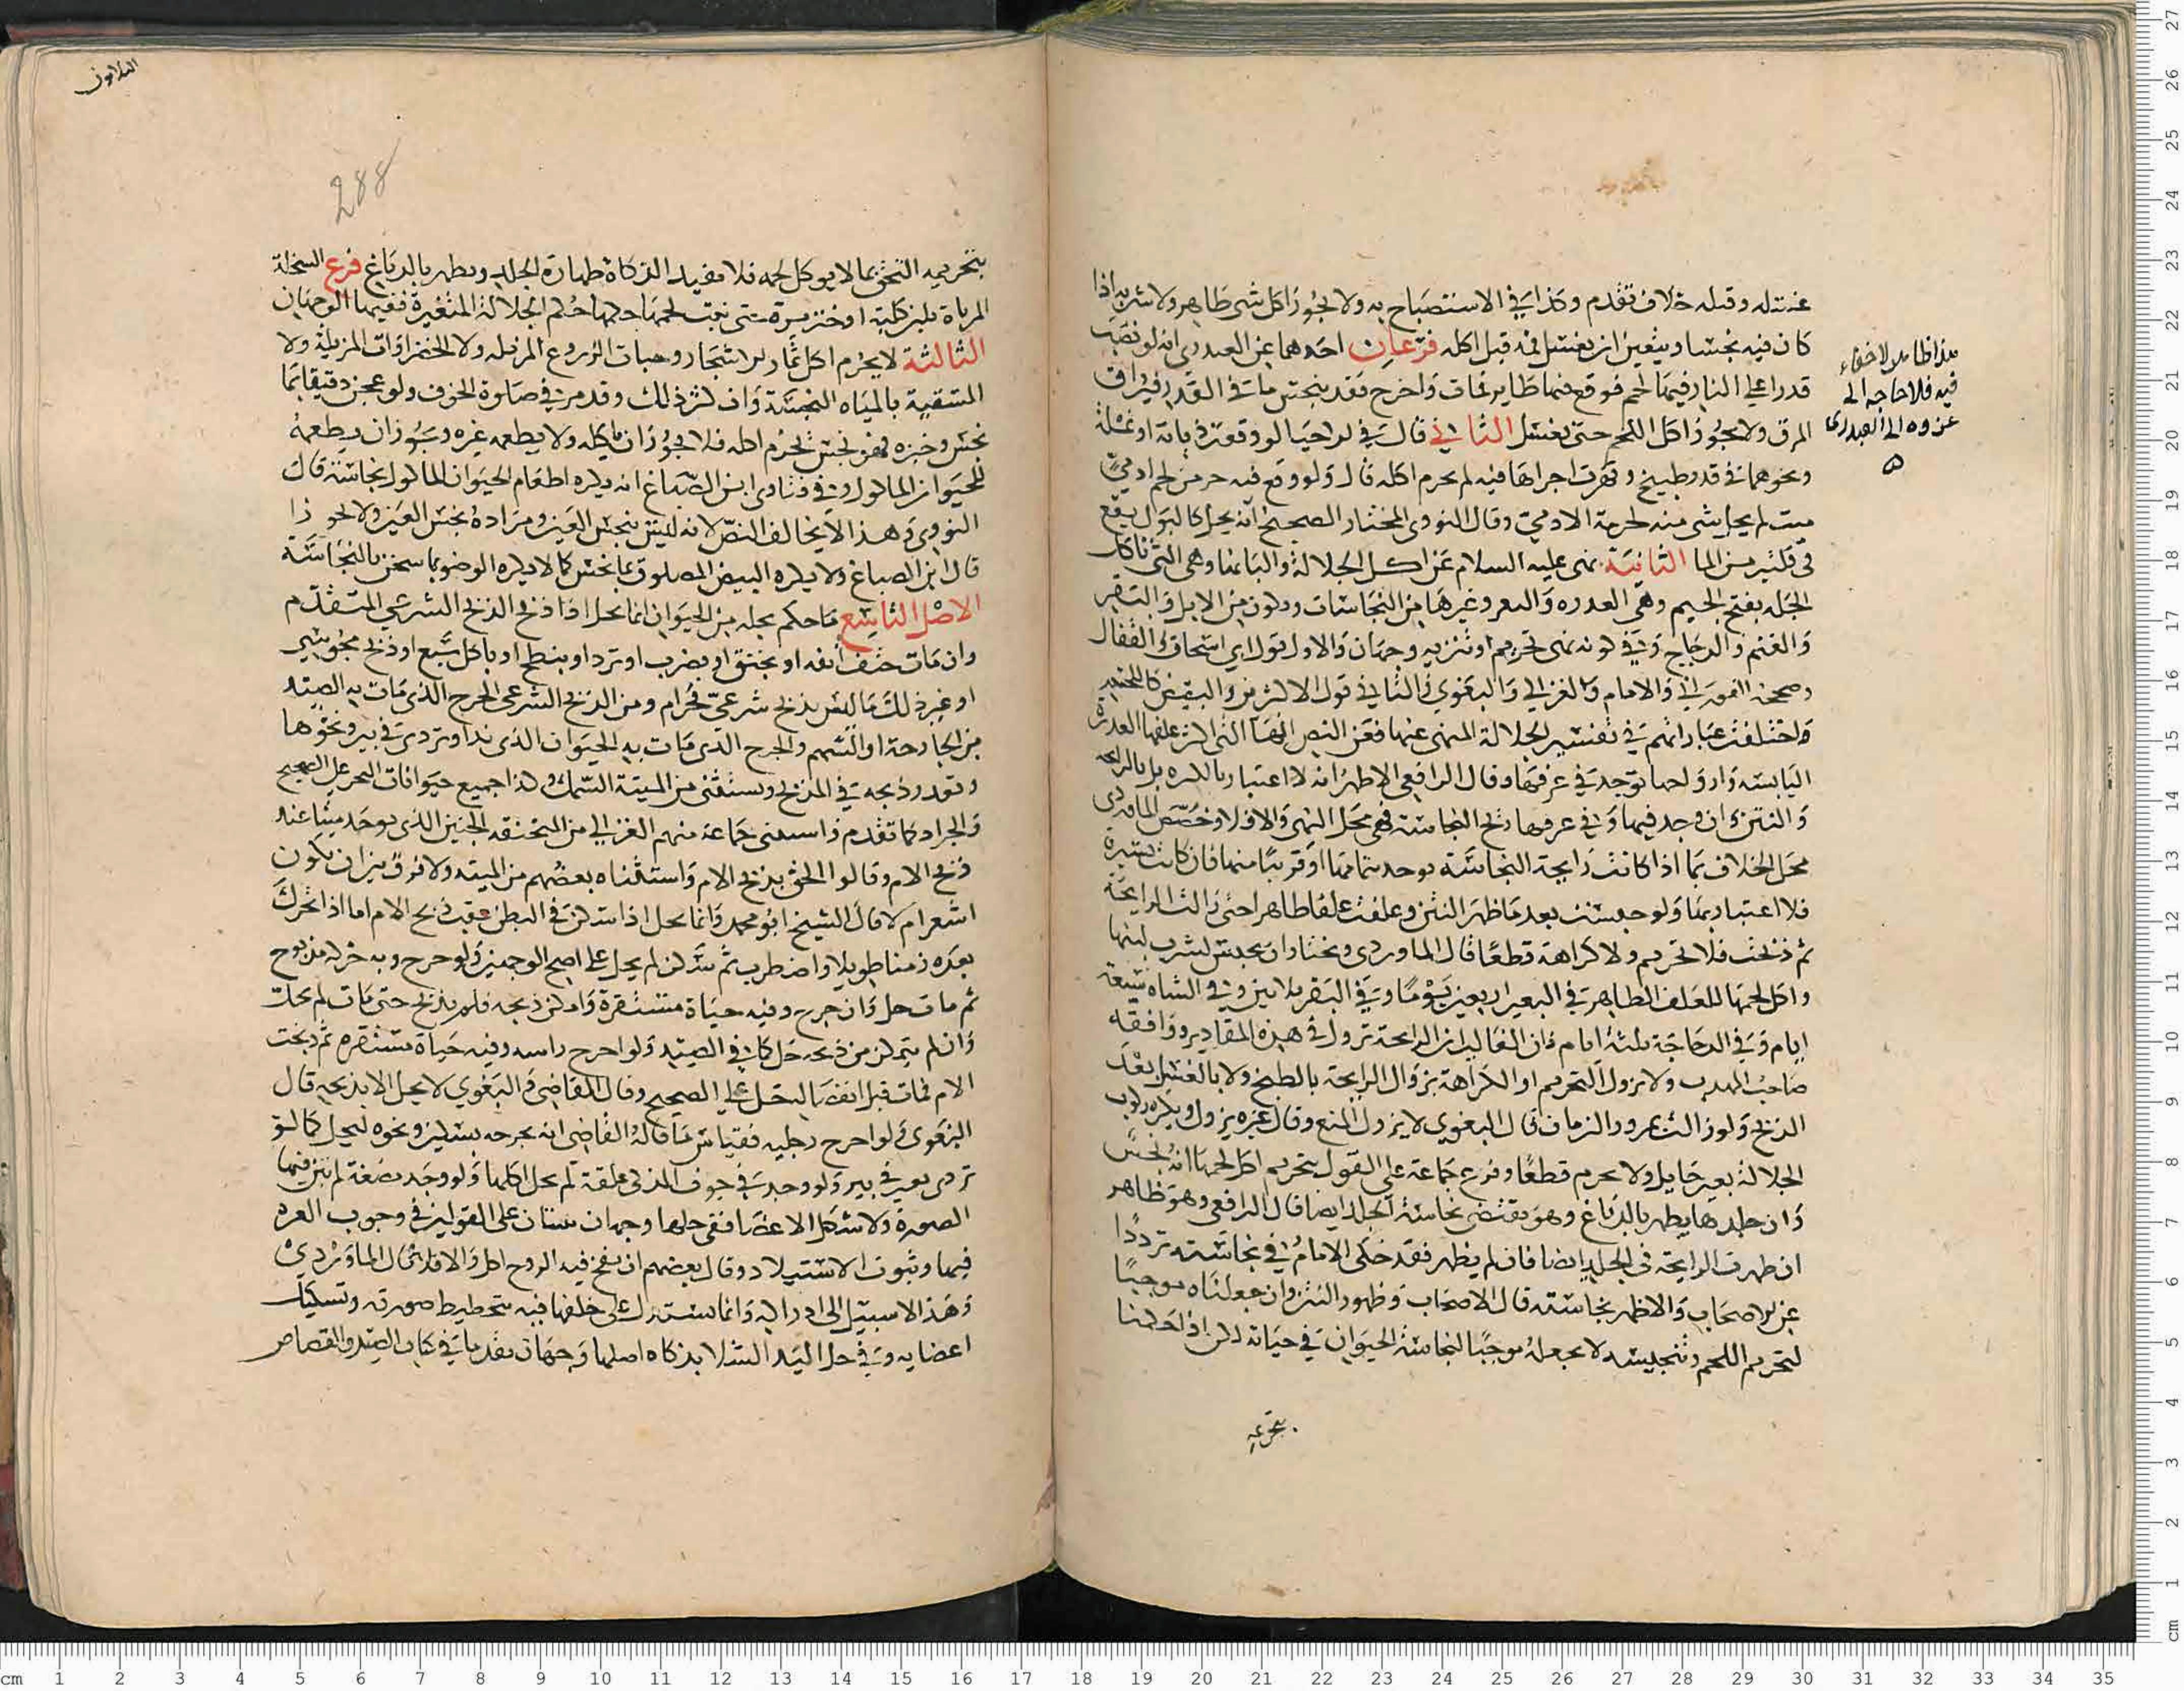 غسله وقبله خلاف تقدم وكذا في الاستصباح به ولا يجوز اكل شي طاهر ولا شربه اذا
كان فيه نجسا ويتعين ان يغسل فمه قبل اكله فرعان احدهما عن العبدري انه لو نصب
قدرا على النار فيها لحم فوقع فيها طاير فمات واخرج فقد ينجس ما في القدر فيراق
المرق ولا يجوز اكل اللحم حتى يغسل الثاني قال في الاحيا لو وقعت ذبابة او نملة
ونحوهما في قدر طبيخ وتهرت اجزاها فيه لم يحرم اكله قال ولو وقع فيه جزء من لحم ادمي
ميت لم يحل شي منه لحرمة الادمي وقال النووي المختار الصحيح انه يحل كالبول يقع
في قلتين من الما الثانية نهى عليه السلام عن اكل الجلالة والبانها وهي التي تاكل
الجلة بفتح الجيم وهي العذره والبعر وغيرها من النجاسات وتكون من الابل والبقر
والغنم والدجاج وفي كونه نهي تحريم او تنزيه وجهان والاول قول ابي اسحاق والقفال
وصححه الفوراني والامام والغزالي والبغوي والثاني قول الاكثرين
واختلفت عباراتهم في تفسير الجلالة المنهي عنها فعن النص انها التي اكثر علفها العذرة
اليابسه وارواحها توجد في عرقها وقال الرافعي الاظهر انه لا اعتبار بالكثره بل بالرايحه
والنتن ان وجد فيها وفي عرقها ريح النجاسة فهي محل النهي والا فلا وخصص الماوردي
محل الخلاف بما اذا كانت رايحة النجاسة توجد بتمامها او قريبا منها فان كانت يسيرة
فلا اعتبار بها ولو حبست بعد ما ظهر النتن وعلفت علفا طاهرا حتى زالت الرايحة
ثم ذبحت فلا تحريم ولا كراهة قطعا قال الماوردي ونختار ان يحبس لشرب لبنها
واكل لحمها للعلف الطاهر في البعير اربعين يوما وفي البقر ثلاثين وفي الشاه سبعة
ايام وفي الدجاجة ثلثة ايام فان الغالب ان الرايحة تزول في هذه المقادير ووافقه
صاحب المهذب ولا يزول التحريم او الكراهة بزوال الرايحة بالطبخ ولا بالغسل بعد
الذبح ولو زالت بمرور الزمان قال البغوي لا يزول المنع وقال غيره يزول ويكره ركوب
الجلالة بغير حايل ولا يحرم قطعا وفرع جماعة على القول بتحريم اكل لحمها انه نجس
وان جلدها يطهر بالدباغ وهو يقتضي نجاسة الجلد ايضا قال الرافعي وهو ظاهر
ان ظهرت الرايحة في الجلد ايضا فان لم يظهر فقد حكى الامام في نجاسته ترددا
عن الاصحاب والاظهر نجاسته قال الاصحاب وظهور النتن وان جعلناه موجبا
لتحريم اللحم وتنجيسه لا نجعله موجبا لنجاسة الحيوان في حياته لكن اذا حكمنا
بتحريمه
هذا ظاهر لا خفاء
فيه فلا حاجه الى
عزوه الى العبدري
الثلاثون
288
بتحريمه التحق بما لا يوكل لحمه فلا تفيد الذكاة طهارة الجلد ويطهر بالدباغ فرع السخلة
المرباة بلبن كلبة او خنزيرة حتى نبت لحمها حكمها حكم الجلالة المتغيرة ففيها الوجهان
الثالثة لا يحرم اكل ثمار الاشجار وحبات الزروع المزبله ولا الخضراوات المزبلة ولا
المتسقية بالمياه النجسة وان كثر ذلك وقد مر في صلوة الخوف ولو عجن دقيقا بما
نجس وخبزه فهو نجس يحرم اكله فلا يجوز ان ياكله ولا يطعمه غيره ويجوز ان يطعمه
للحيوان الماكول وفي فتاوى ابن الصباغ انه يكره اطعام الحيوان الماكول نجاسة قال
النووي وهذا لا يخالف النص لانه ليس بنجس العين ومراده نجس العين
قال ابن الصباغ ولا يكره البيض المصلوق بما نجس كما لا يكره الوضو بما سخن بالنجاسة
الاصل التاسع ما حكم بحله من الحيوان انما يحل اذا ذبح الذبح الشرعي المتقدم
وان مات حتف انفه او بخنق او بضرب او ترد او بنطح او باكل سبع او ذبح مجوسي
او غير ذلك مما ليس بذبح شرعي فحرام ومن الذبح الشرعي الجرح الذي مات به الصيد
من الجارحة او السهم والجرح الذي مات به الحيوان الذي ند او تردى في بير ونحوها
وتعذر ذبحه في المذبح ويستثنى من الميتة السمك وكذا جميع حيوانات البحر على الصحيح
والجراد كما تقدم واستثنى جماعة منهم الغزالي من المنخنقه الجنين الذي يوجد ميتا عند
ذبح الام وقالوا الحق بذبح الام واستثناه بعضهم من الميته ولا فرق بين ان يكون
اشعر ام لا قال الشيخ ابو محمد وانما يحل اذا سكن في البطن عقب ذبح الام اما اذا تحرك
بعده زمنا طويلا واضطرب ثم سكن لم يحل على اصح الوجهين ولو خرج وبه حركة مذبوح
ثم مات حل وان خرج وفيه حياة مستقرة وامكن ذبحه فلم يذبح حتى مات لم يحل
وان لم يتمكن من ذبحه حل كما في الصيد ولو اخرج راسه وفيه حياة مستقره ثم ذبحت
الام فمات قبل انفصاله حل على الصحيح وقال القاضي والبغوي لا يحل الا بذبحه قال
البغوي ولو اخرج رجليه فقياس ما قاله القاضي انه يجرحه بسكين ونحوه ليحل كما لو
تردى بعير في بير ولو وجد في جوف المذكى علقة لم يحل اكلها ولو وجد مضغة لم تبن فيها
الصورة ولا تشكل الاعضا ففي حلها وجهان مبنيان على القولين في وجوب الغرة
فيها وثبوت الاستيلاد وقال بعضهم ان نفخ فيه الروح اكل والا فلا قال الماوردي
وهذا لا سبيل الى ادراكه وانما يستدل على خلقها فيه بتخطيط صورته وتشكيل
اعضايه وفي حل اليد الشلا بذكاه اصلها وجهان تقدما في كتاب الصيد والقصاص